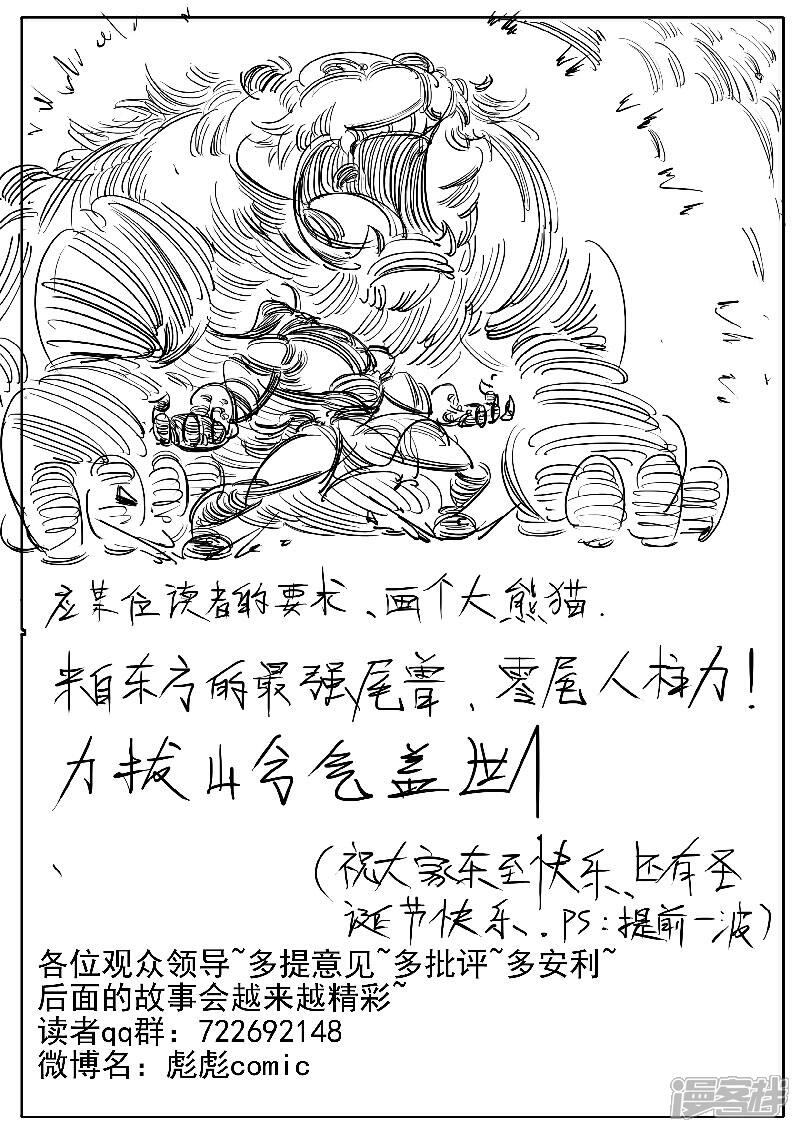 应某位读者的要求、画个大熊猫.
来自东方的最强尾兽、零尾人柱力!
力拔山兮气盖世!
(祝大家冬至快乐、还有圣
诞节快乐、. PS:提前一波)
各位观众领导~多提意见~多批评~多安利~
后面的故事会越来越精彩~
读者qq群: 722692148
微博名: 彪彪comic
漫客栈